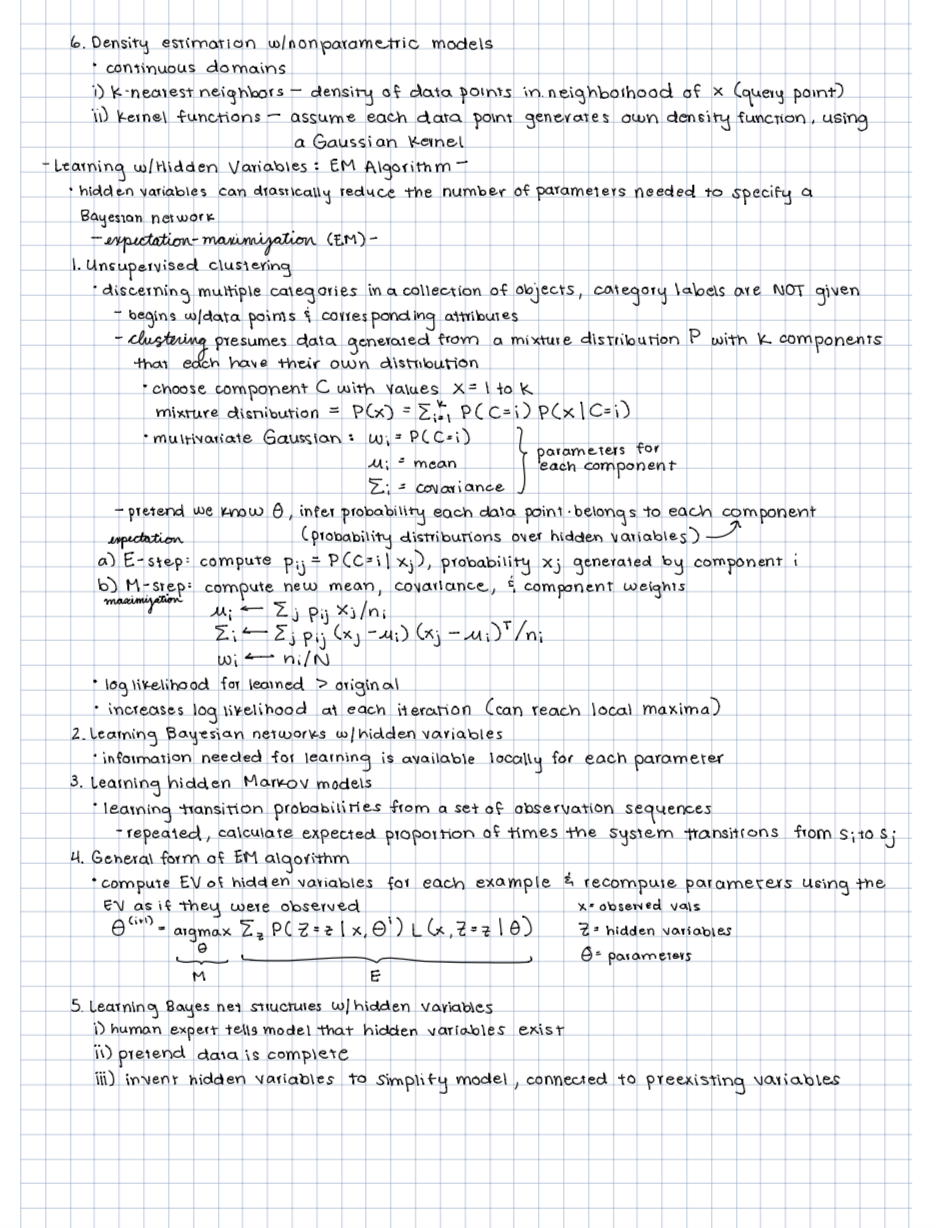 6. Density estimation w/nonparametric models
• continuous domains
i) k-nearest neighbors – density of data points in neighborhood of x (query point)
ii) kernel functions – assume each data point generates own density function, using
a Gaussian kernel
- Learning w/Hidden Variables: EM Algorithm -
• hidden variables can drastically reduce the number of parameters needed to specify a
Bayesian network
- expectation-maximization (EM) -
1. Unsupervised clustering
• discerning multiple categories in a collection of objects, category labels are NOT given
- begins w/data points & corresponding attributes
- clustering presumes data generated from a mixture distribution P with k components
that each have their own distribution
• choose component C with values X = 1 to k
mixture disribution = P(x) = Σᵢ₌₁ᵏ P(C=i) P(x|C=i)
• multivariate Gaussian: wᵢ = P(C=i)
μᵢ = mean
Σᵢ = covariance
parameters for
each component
- pretend we know θ, infer probability each data point belongs to each component
(probability distributions over hidden variables)
expectation
a) E-step: compute pᵢⱼ = P(C=i|xⱼ), probability xⱼ generated by component i
b) M-step: compute new mean, covariance, & component weights
maximization
μᵢ ← Σⱼ pᵢⱼ xⱼ/nᵢ
Σᵢ ← Σⱼ pᵢⱼ (xⱼ - μᵢ) (xⱼ - μᵢ)ᵀ/nᵢ
wᵢ ← nᵢ/N
• log likelihood for learned > original
• increases log likelihood at each iteration (can reach local maxima)
2. Learning Bayesian networks w/hidden variables
• information needed for learning is available locally for each parameter
3. Learning hidden Markov models
• learning transition probabilities from a set of observation sequences
- repeated, calculate expected proportion of times the system transitions from sᵢ to sⱼ
4. General form of EM algorithm
• compute EV of hidden variables for each example & recompute parameters using the
EV as if they were observed
x = observed vals
θ⁽ⁱ⁺¹⁾ = argmax Σ_z P(Z=z|x, θⁱ) L(x, Z=z|θ)
θ
Z = hidden variables
θ = parameters
M E
5. Learning Bayes net structures w/hidden variables
i) human expert tells model that hidden variables exist
ii) pretend data is complete
iii) invent hidden variables to simplify model, connected to preexisting variables